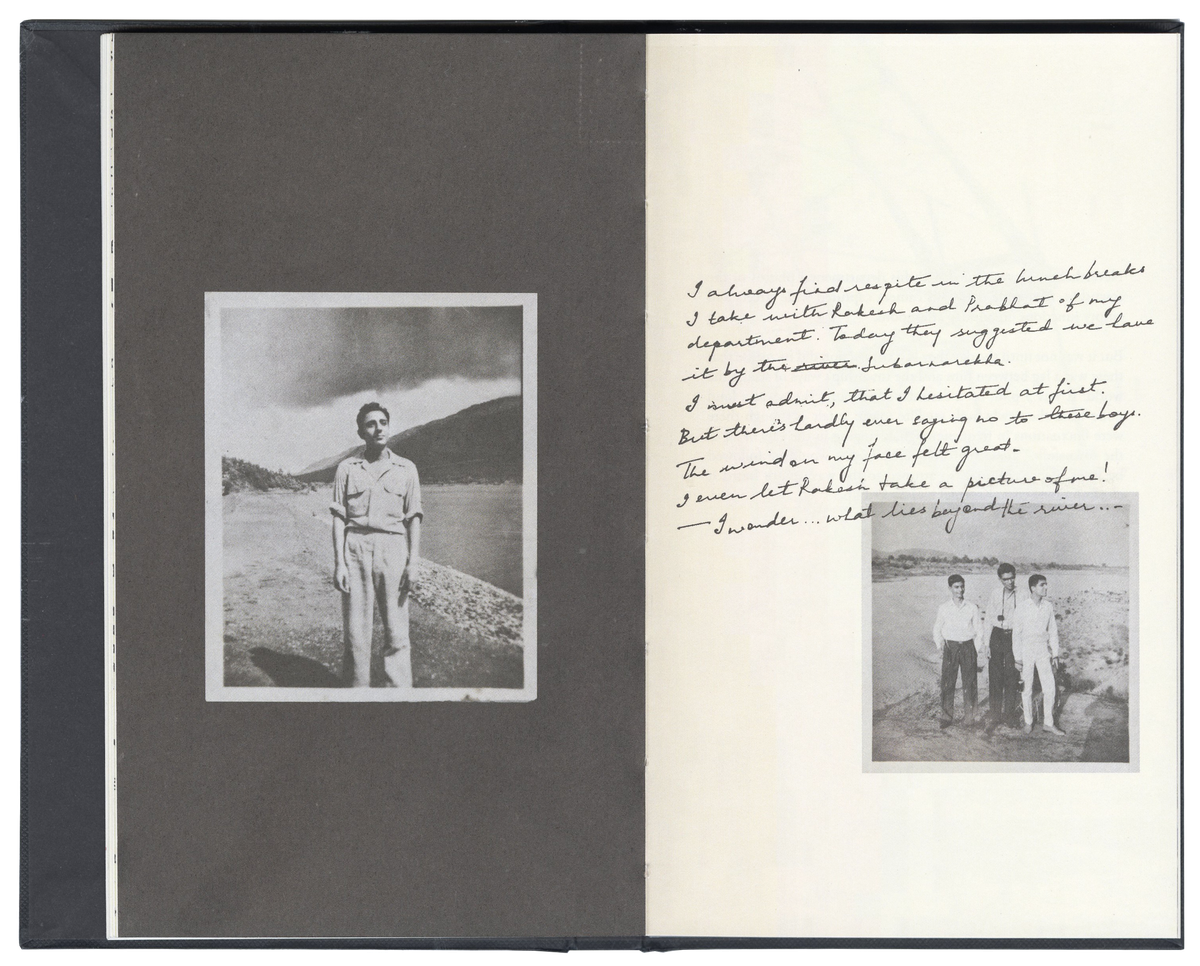 I always find respite in the lunch breaks
I take with Rakesh and Prabhat of my
department. Today they suggested we have
it by the river Subarnarekha.
I must admit, that I hesitated at first.
But there's hardly ever saying no to these boys.
The wind on my face felt great.
I even let Rakesh take a picture of me!
— I wonder... what lies beyond the river...—